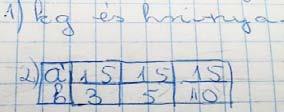 1) kg és hrivnya.
2) a 15 15 15
b 3 5 10